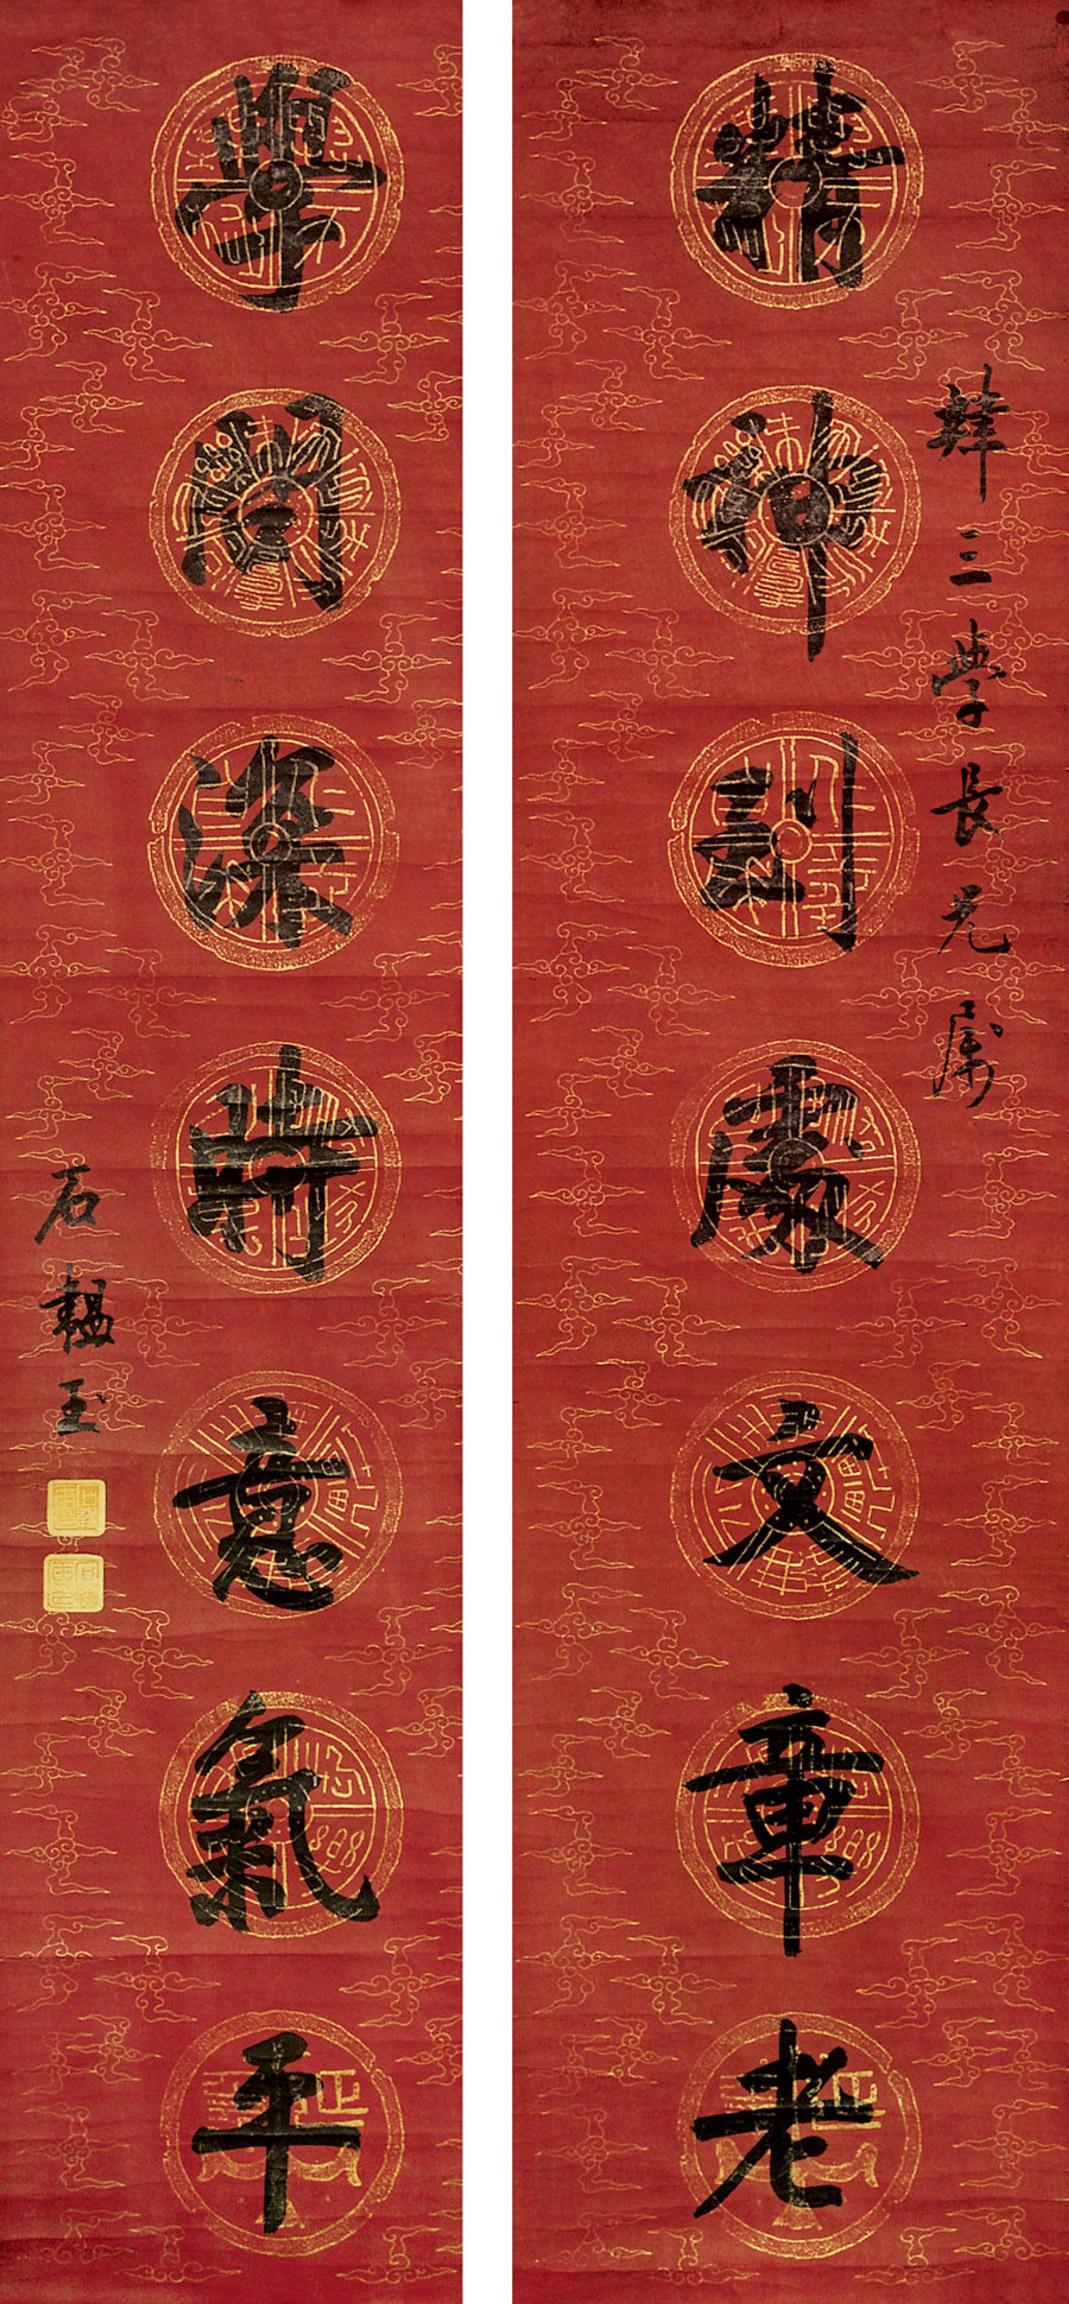 三學長兄屬
精神到處文章老
學問深時意氣平
石韞玉